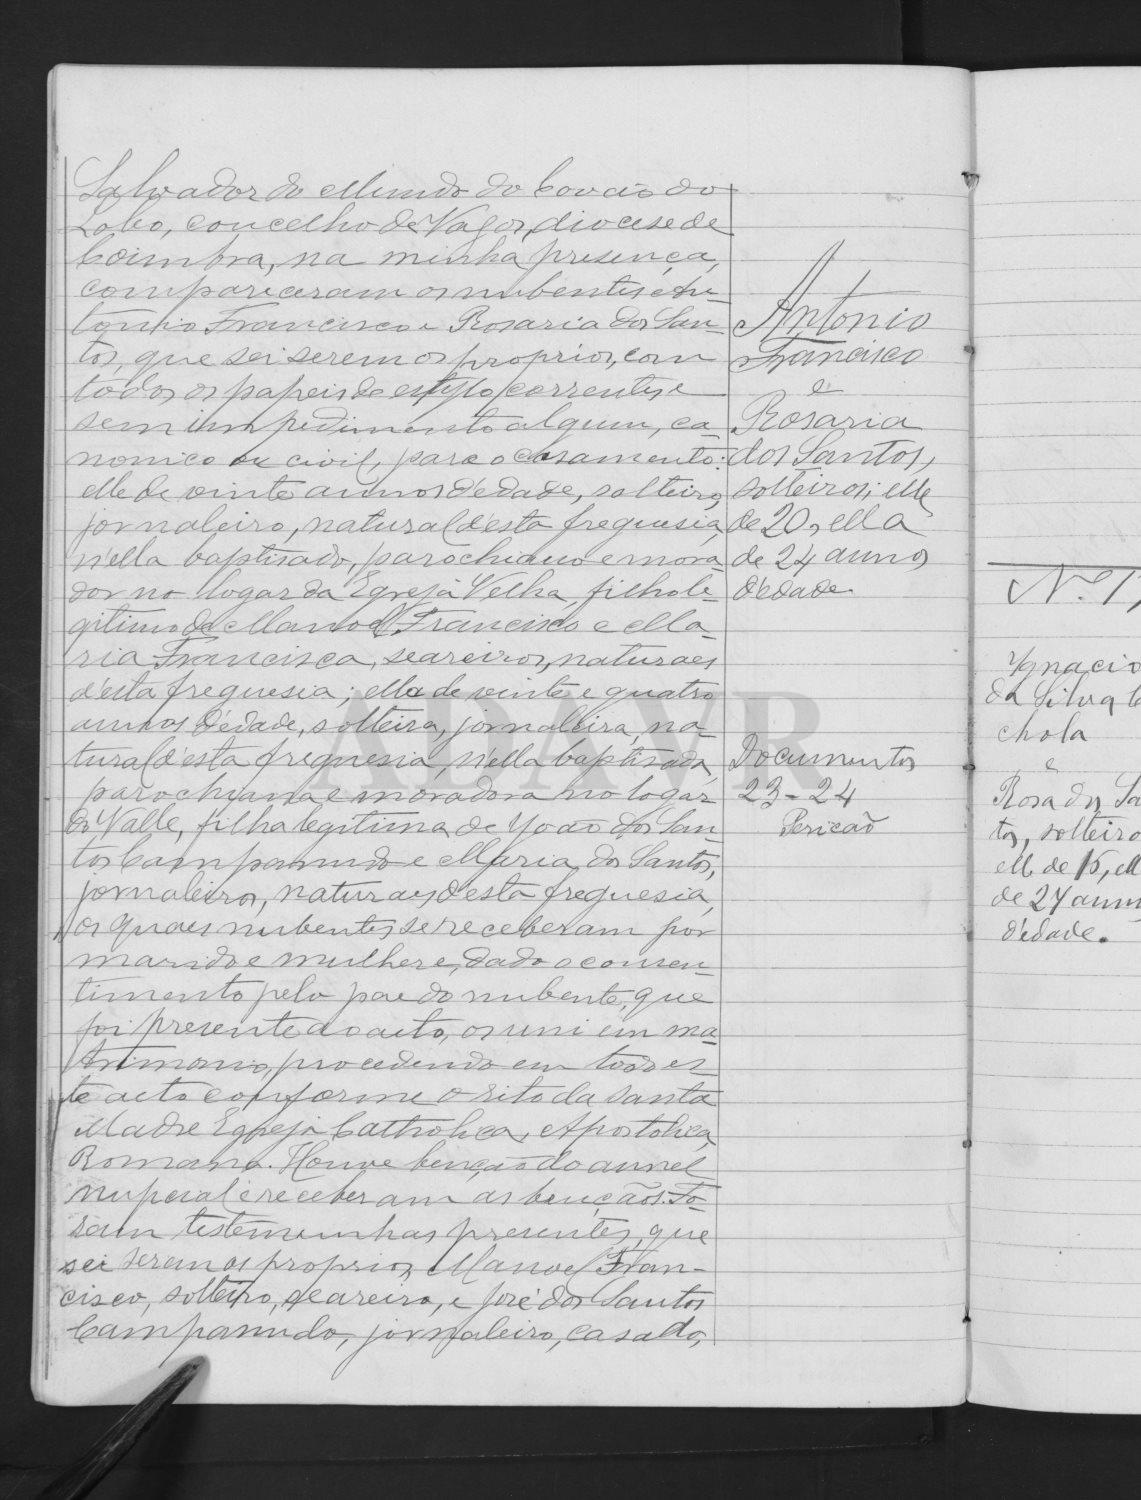 Salvador do Mundo do Covão do
Lobo, concelho de Vagos, diocese de
Coimbra, na minha presença,
compareceram os nubentes An-
tonio Francisco e Rosaria dos San-
tos, que sei serem os proprios, com
todos os papeis do estylo correntes e
sem impedimento algum, ca-
nonico ou civil, para o casamento:
elle de vinte annos d'edade, solteiro,
jornaleiro, natural d'esta freguesia,
n'ella baptisado, parochiano e mora-
dor no logar da Egreja Velha, filho le-
gitimo de Manoel Francisco e Ma-
ria Francisca, seareiros, naturaes
d'esta freguesia; ella de vinte e quatro
annos d'edade, solteira, jornaleira, na-
tural d'esta freguesia, n'ella baptisada,
parochiana e moradora no logar
do Valle, filha legitima de João dos San-
tos Campanudo e Maria dos Santos,
jornaleiros, naturaes d'esta freguesia,
os quaes nubentes se receberam por
marido e mulher e, dado o consen-
timento pelo pae do nubente, que
foi presente ao acto, os uni em ma-
trimonio, procedendo em todo es-
te acto conforme o rito da Santa
Madre Egreja Catholica, Apostolica,
Romana. Houve benção do annel
nupcial e receberam as bençãos. Fo-
ram testemunhas presentes, que
sei serem os proprios, Manoel Fran-
cisco, solteiro, seareiro, e José dos Santos
Campanudo, jornaleiro, casado,
Antonio
Francisco
e
Rosaria
dos Santos,
solteiros; elle
de 20, ella
de 24 annos
d'edade
Documentos
23-24
Pericão
ADAVR
Nº 1
Ignacio
da Silva
chola
e
Rosa dos Sa
tos, solteiro
elle de 15, ell
de 27 ann
d'edade.